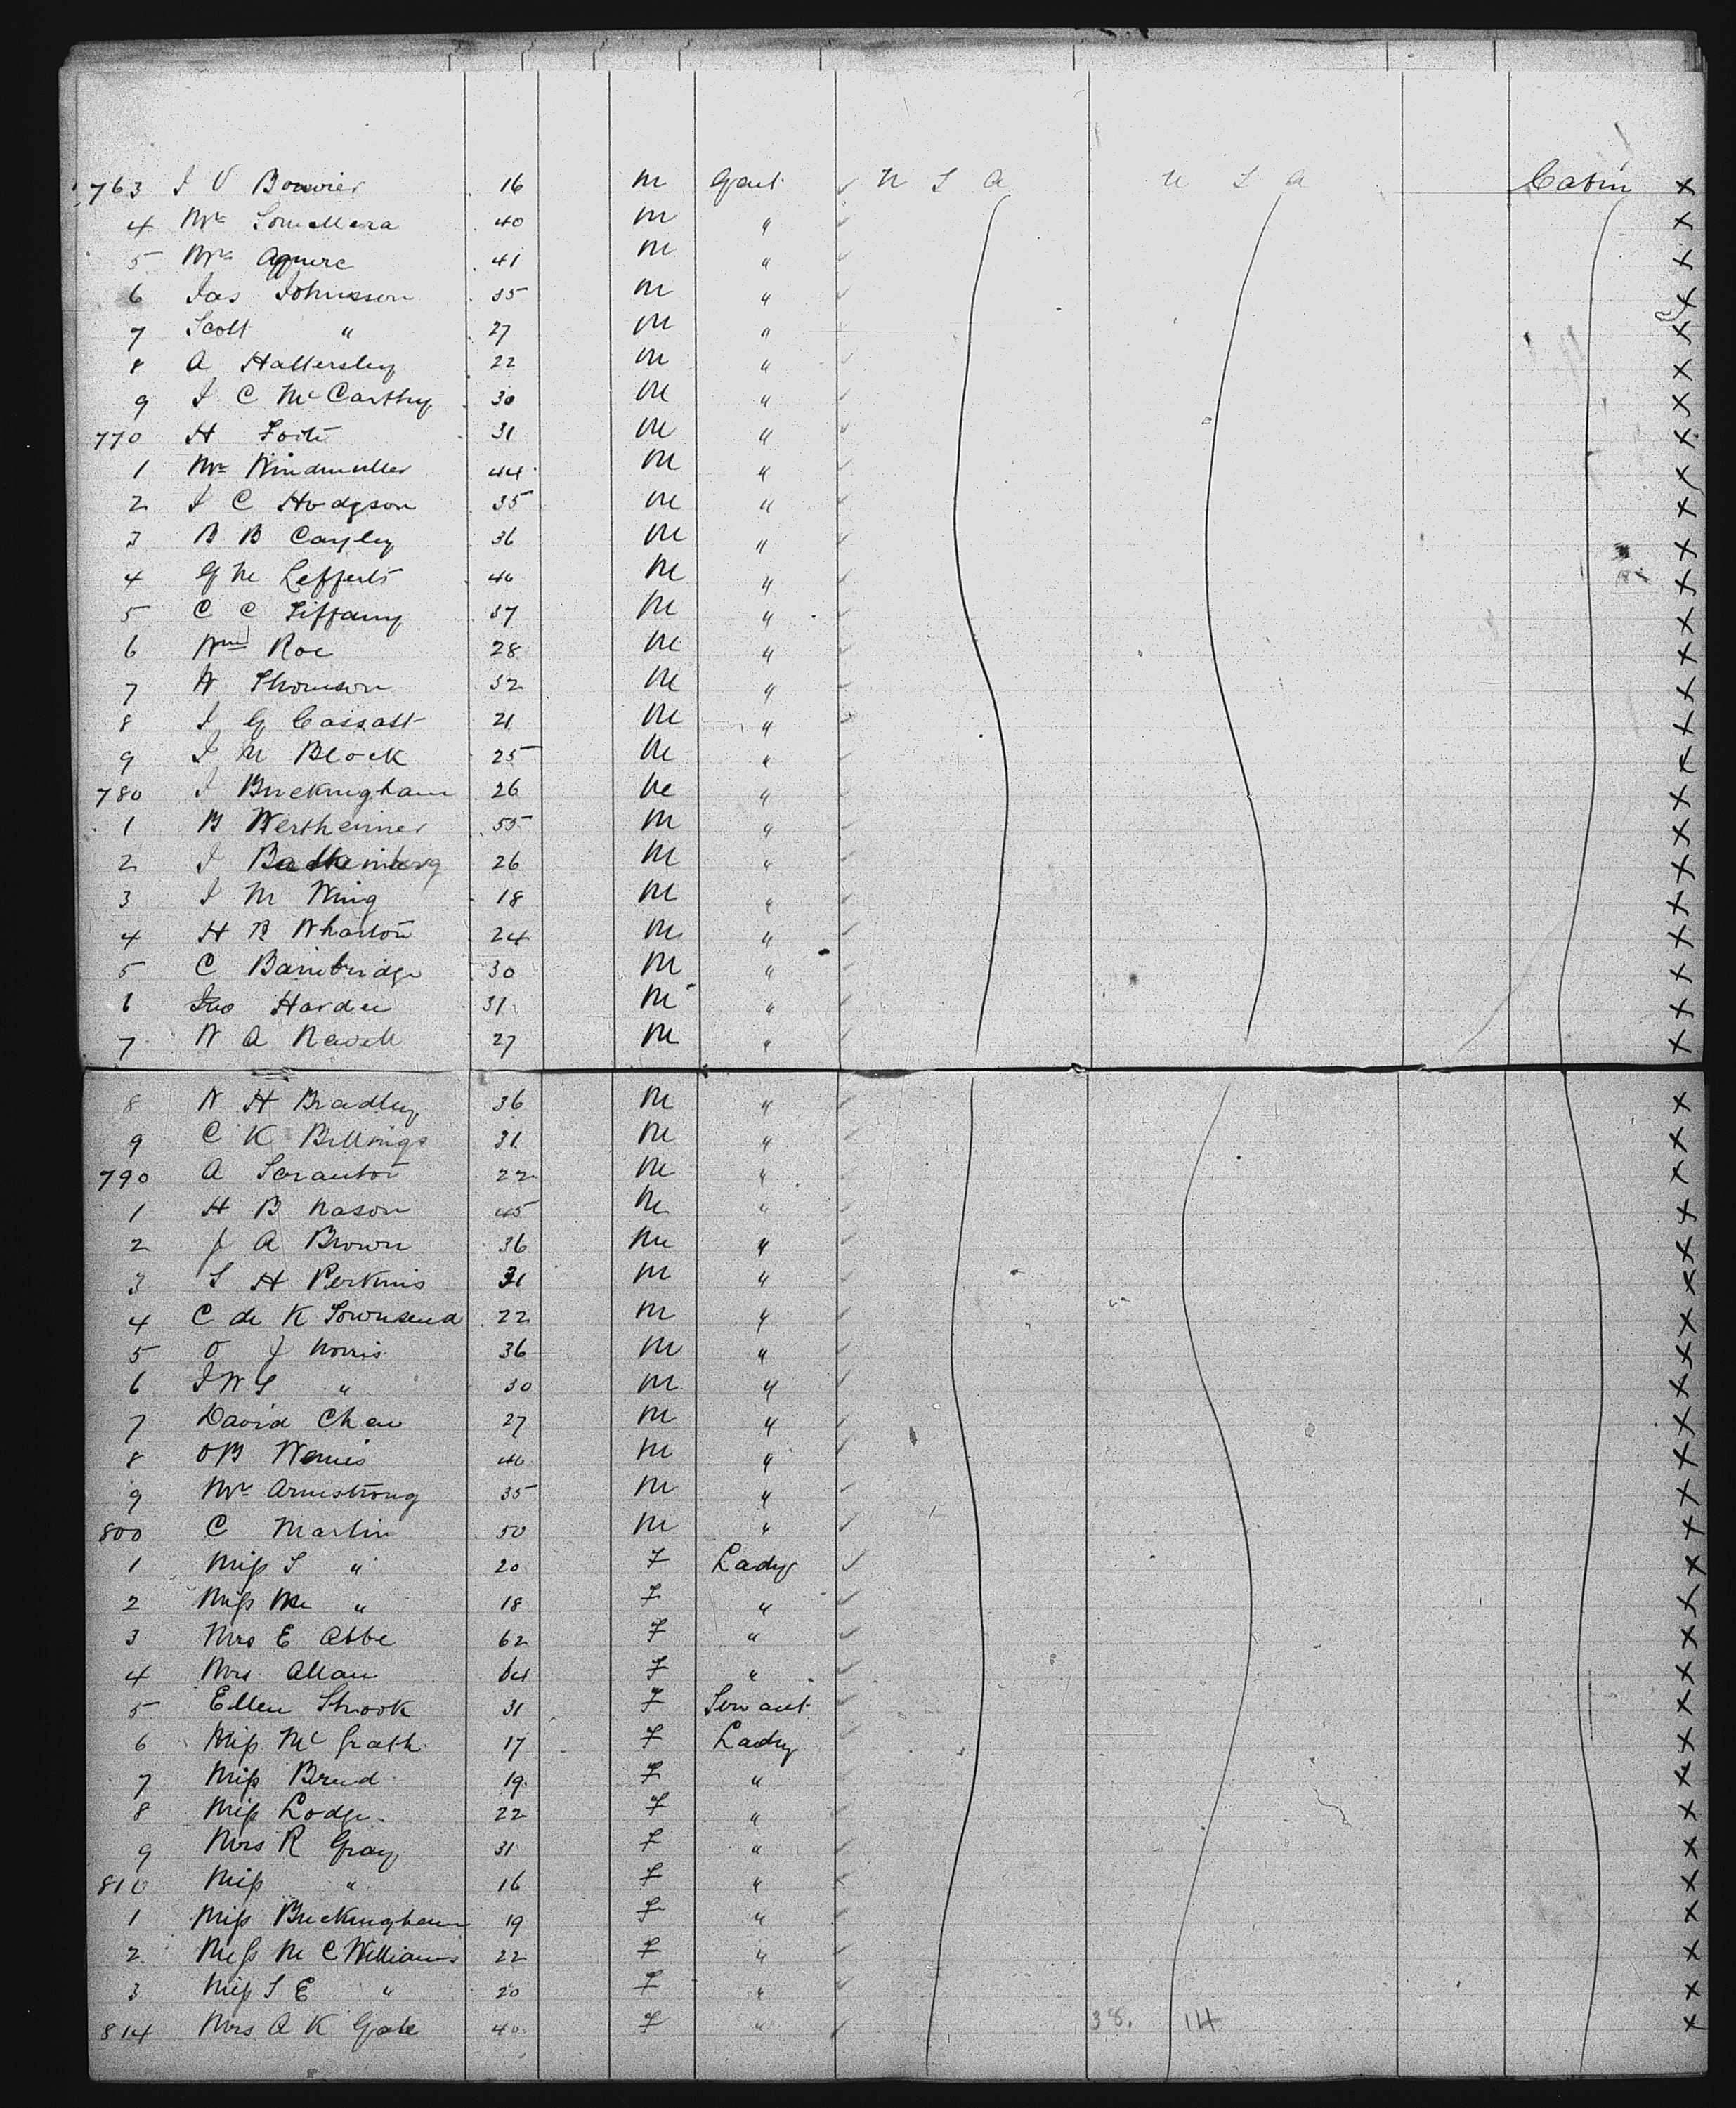 763 J V Bouvier 16 M Gent U S A U S A Cabin X
4 Mr 40 M " X
5 Mr Aguere 41 M " X
6 Jas Johnson 35 M " X
7 Scott " 27 M " X
8 A Hattersley 22 M " X
9 J C McCarthy 30 M " X
770 H 31 M " X
1 Mr Windmuller 44 M " X
2 J C Hodgson 35 M " X
3 B B Cayley 36 M " X
4 G M Lefferts 40 M " X
5 C C Tiffany 37 M " X
6 Wm Roe 28 M " X
7 W Thomson 32 M " X
8 J G Cassatt 21 M " X
9 J M Block 25 M " X
780 J Buckingham 26 M " X
1 B Wertheimer 55 M " X
2 J 26 M " X
3 J M Wing 18 M " X
4 H B Wharton 24 M " X
5 C Bainbridge 30 M " X
6 Jno Hardee 31 M " X
7 W A Nevell 27 M " X
8 W H Bradley 36 M " X
9 C K Billings 31 M " X
790 A Scranton 22 M " X
1 H B Nason 45 M " X
2 J A Brown 36 M " X
3 S H Perkins 31 M " X
4 C de K Townsend 22 M " X
5 O J Norris 36 M " X
6 J W S " 30 M " X
7 David Chew 27 M " X
8 O B 40 M " X
9 Mr Armstrong 35 M " X
800 C Martin 50 M " X
1 Miss S " 20 F Lady X
2 Miss M " 18 F " X
3 Mrs E Abbe 62 F " X
4 Mrs Allan 64 F " X
5 Ellen Shook 31 F Servant X
6 Miss McGrath 17 F Lady X
7 Miss 19 F " X
8 Miss Lodge 22 F " X
9 Mrs R Gray 31 F " X
810 Miss " 16 F " X
1 Miss Buckingham 19 F " X
2 Miss M C Williams 22 F " X
3 Miss S E " 20 F " X
814 Mrs A K Gale 40 F " 38. 14 X